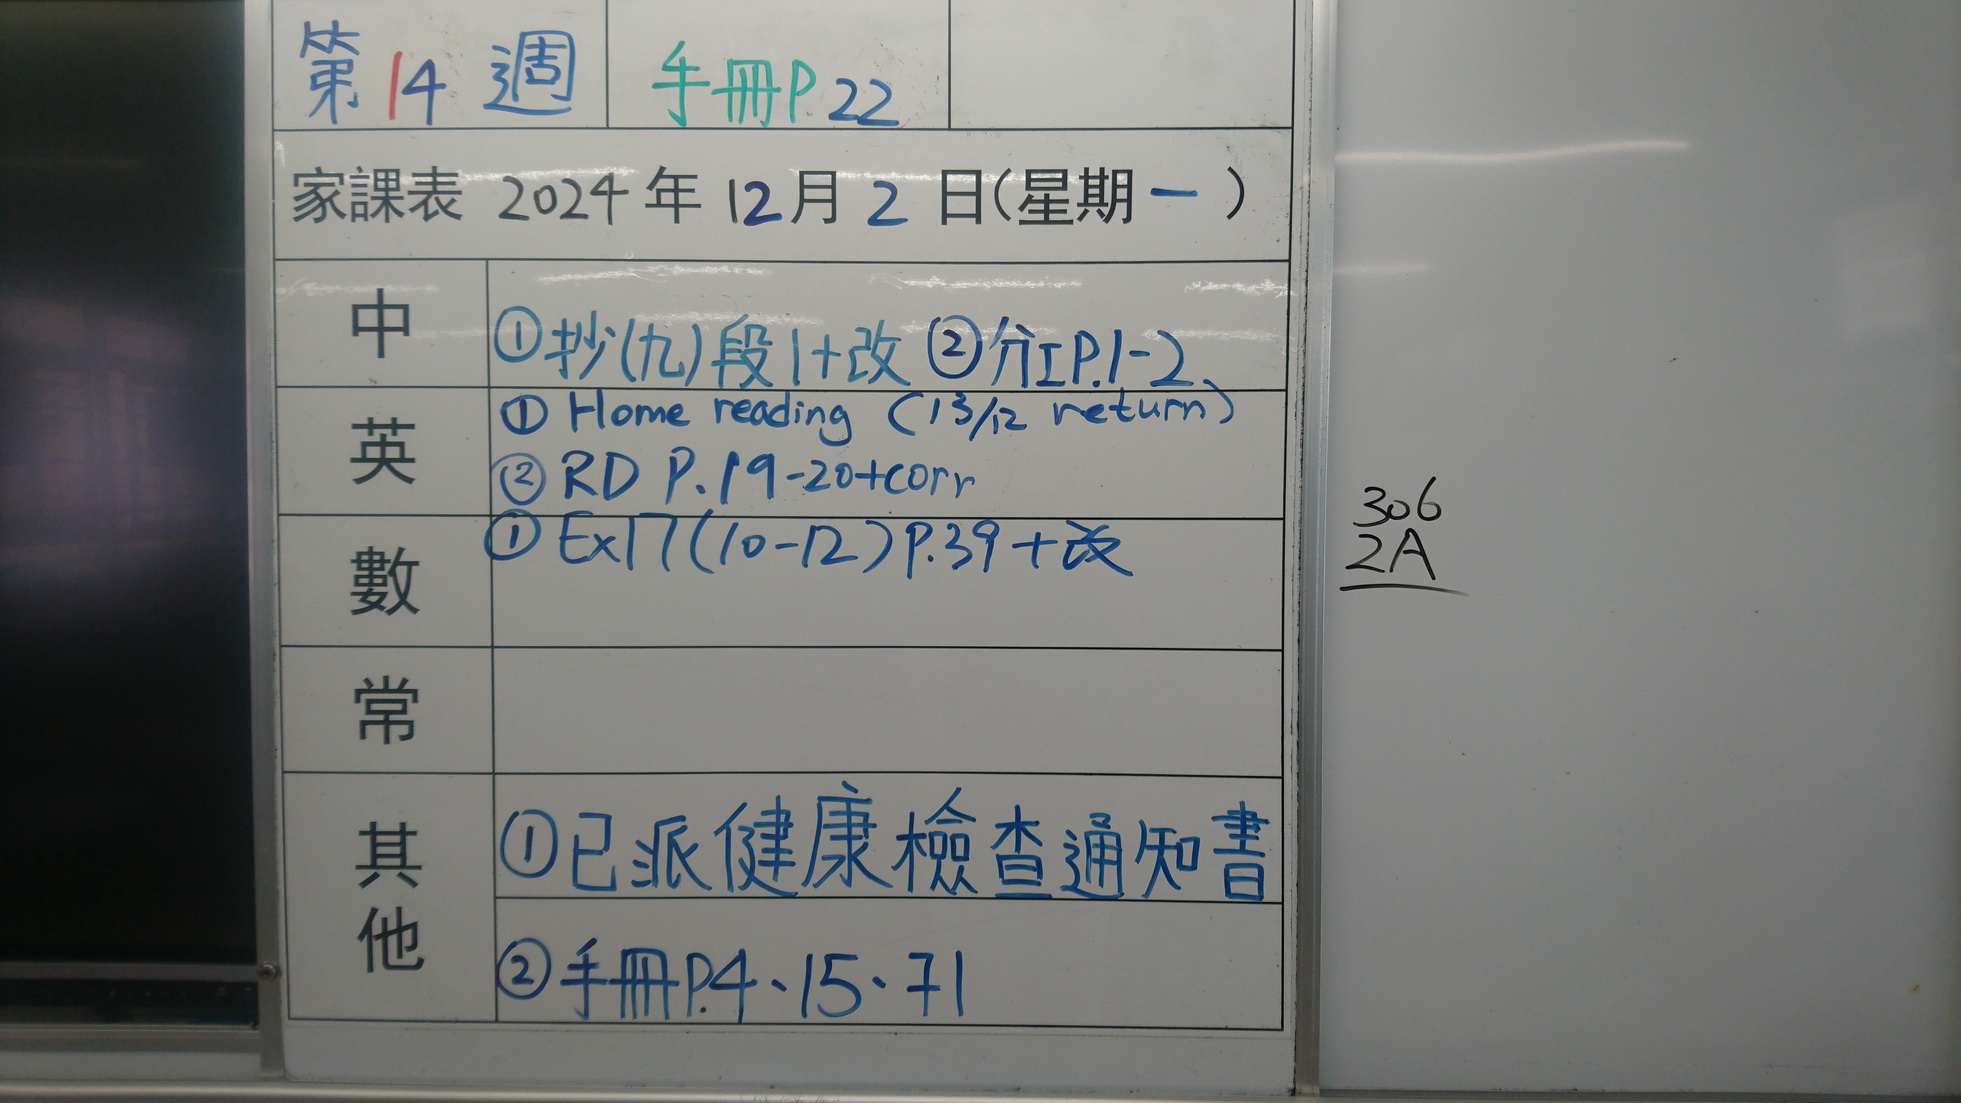 第14週 手冊P.22
家課表 2024年12月2日(星期一)
中 ①抄(九)段1+改 ②分工P.1-2
英 ① Home reading (13/12 return)
② RD P.19-20+corr
數 ① Ex17(10-12)P.39+改
常
其他 ①已派健康檢查通知書
②手冊P.4、15、71
306
2A